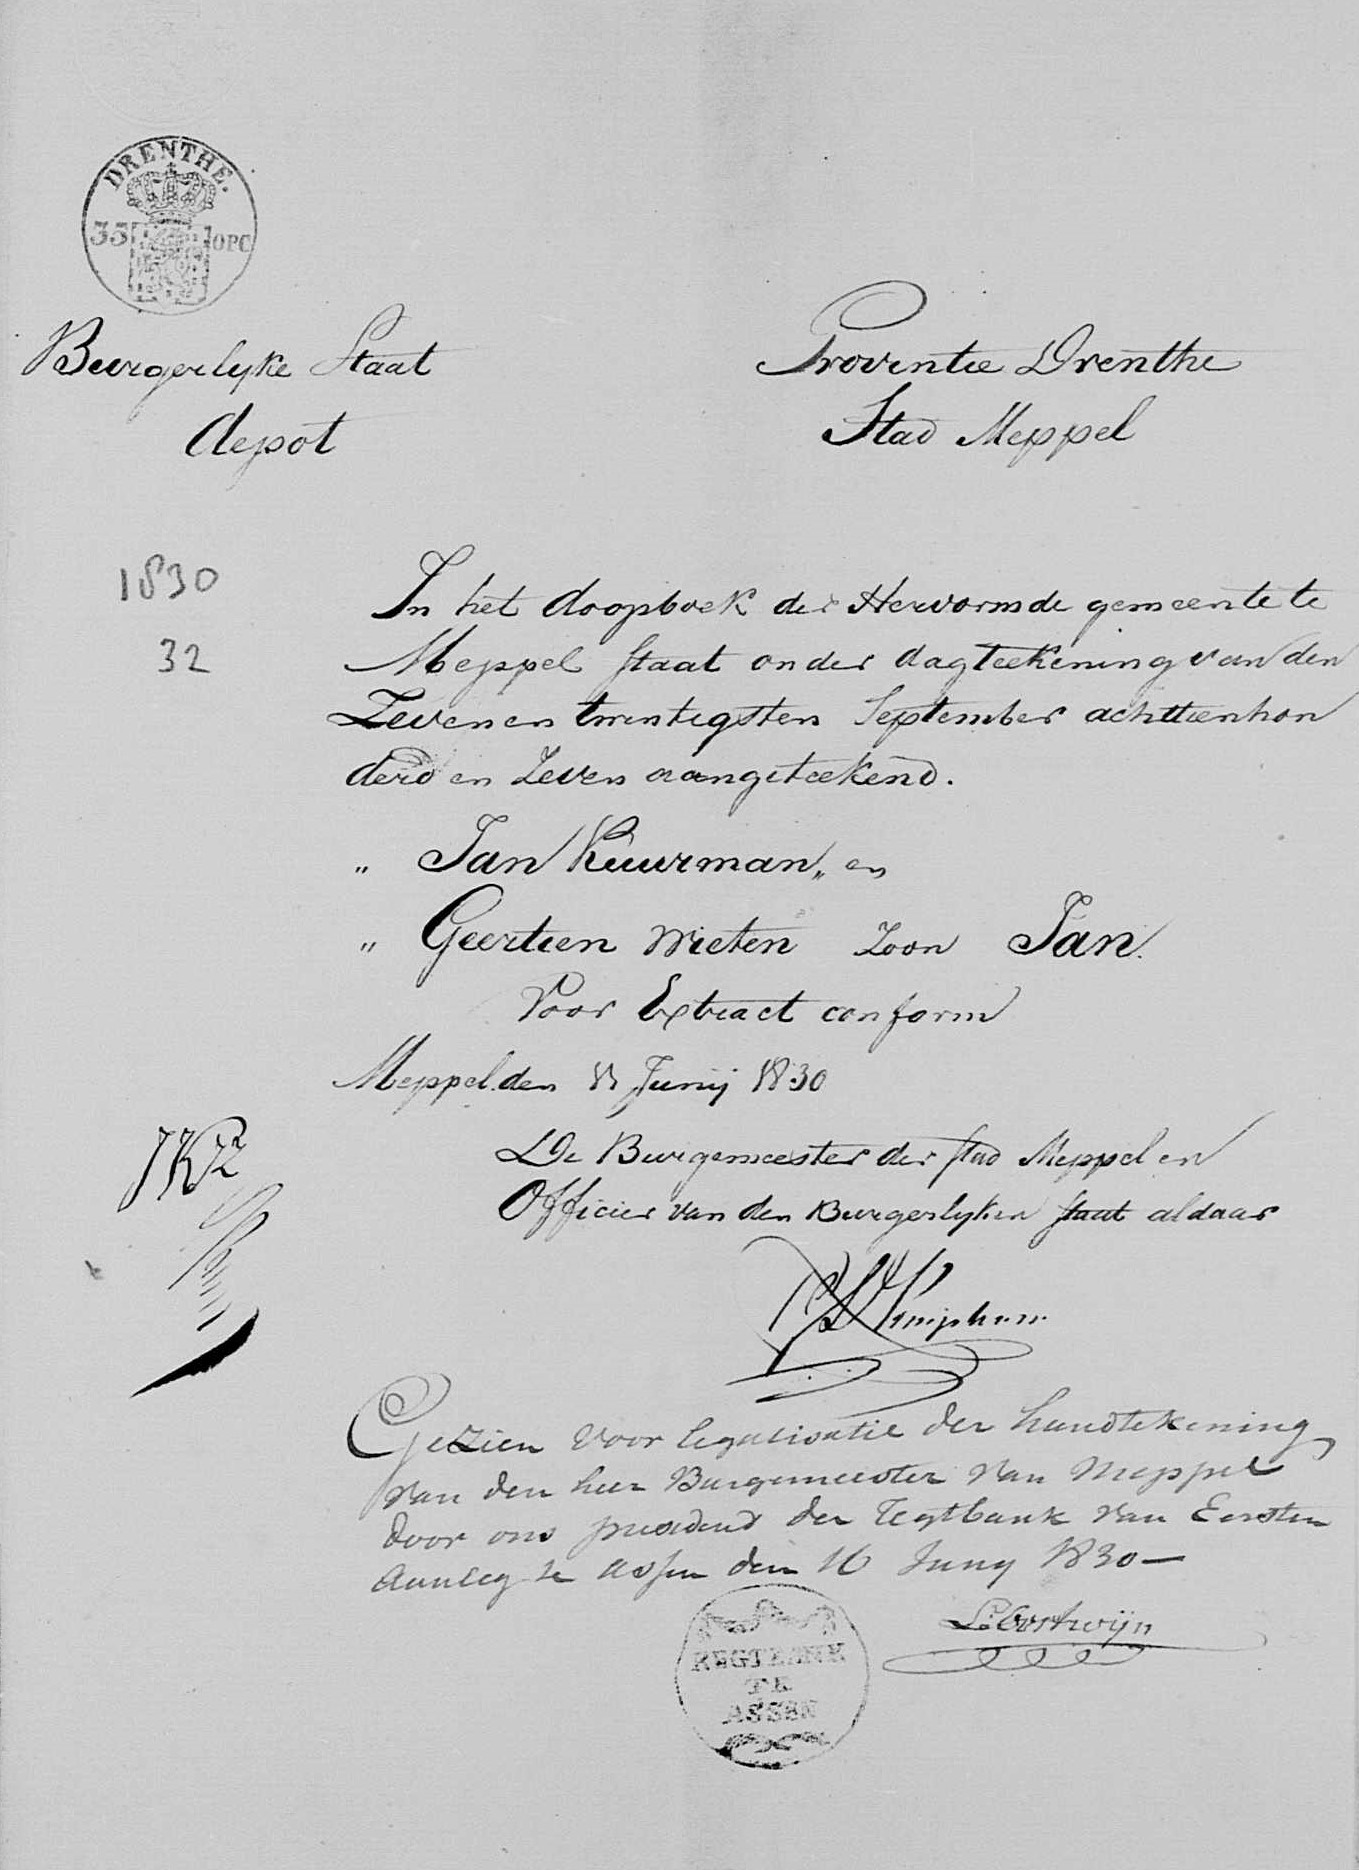 DRENTHE.
35 OPC
Burgerlyke Staat
depot
Provintie Drenthe
Stad Meppel
1830
32
In het doopboek der Hervormde gemeente te
Meppel staat onder dagteekening van den
Zevenentwintigsten September achttienhon
derd en Zeven aangeteekend.
„ Jan Kuurman „ en
„ Geertien Wieten Zoon Jan.
Voor Extract conform
Meppel den Junij 1830
De Burgemeester der stad Meppel en
Officier van den Burgerlyken staat aldaar
Gezien voor legalisatie der handtekening
van den heer Burgemeester van Meppel
door ons president der Regtbank van Eersten
Aanleg te Assen den 16 Juny 1830 —
REGTBANK
TE
ASSEN